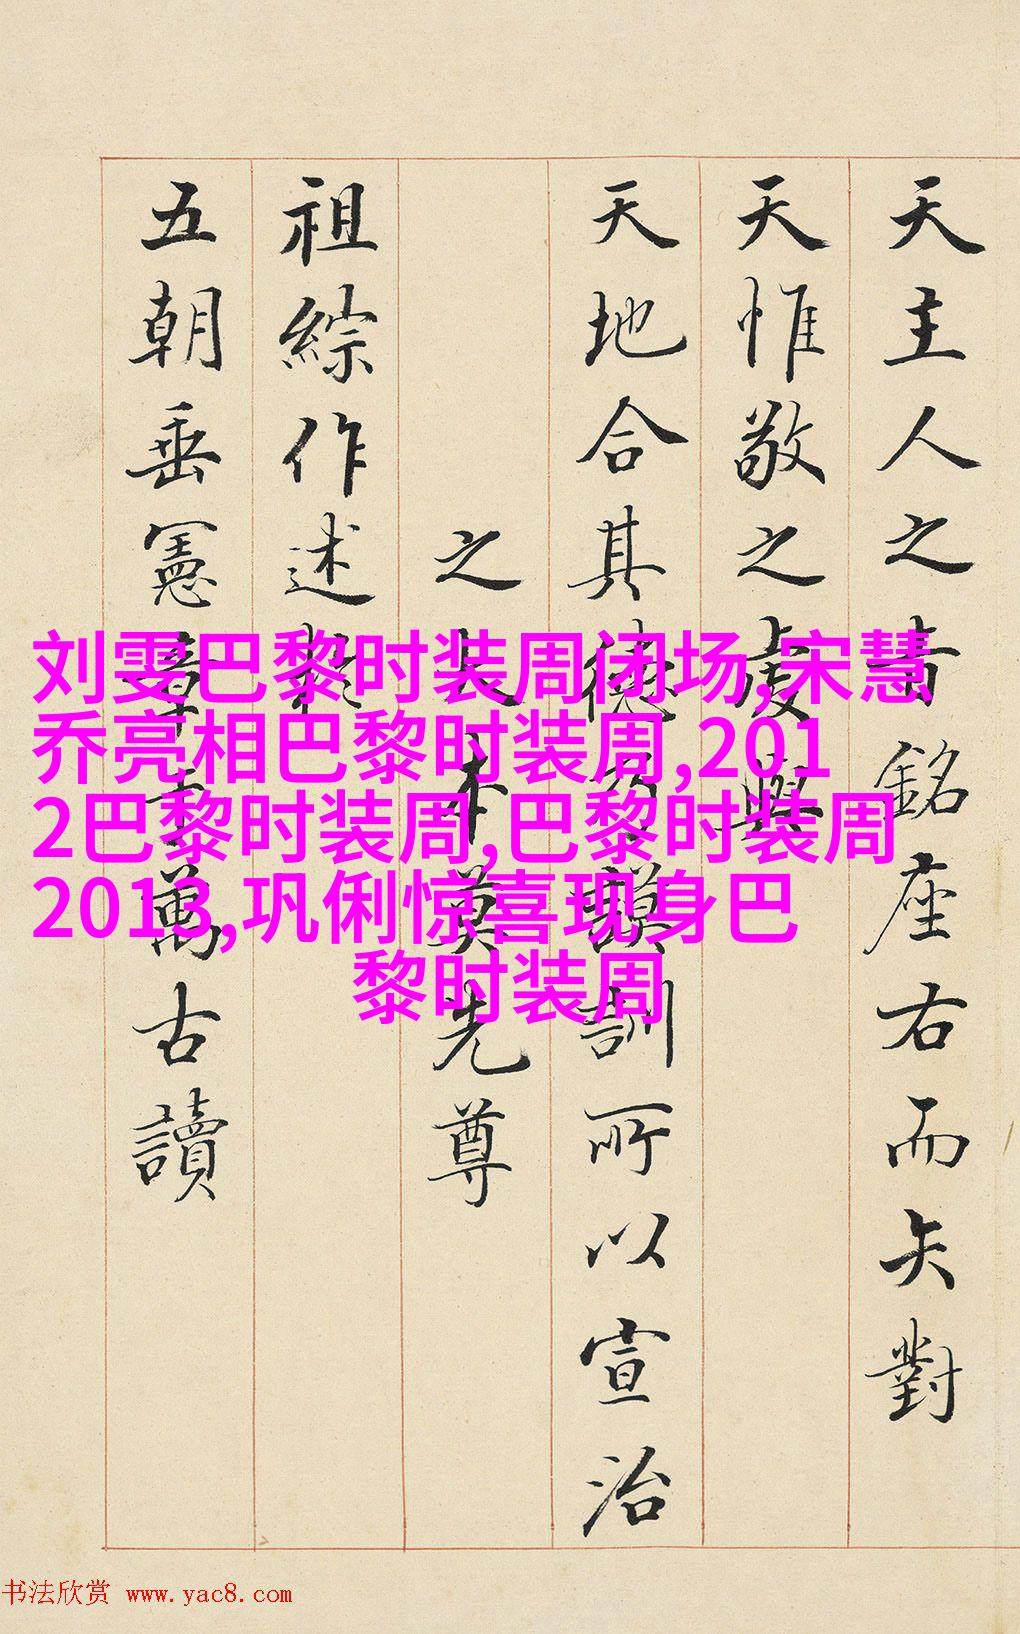 天主人之責銘座右而矢對
天惟敬之虔與
天地合其德乃謨訓所以宣治
之大本莫先尊
祖綜作述於
五朝垂憲章于萬古讀
刘雯巴黎时装周闭场,宋慧
乔亮相巴黎时装周,201
2巴黎时装周,巴黎时装周
2013,巩俐惊喜现身巴
黎时装周
书法欣赏 www.yac8.com